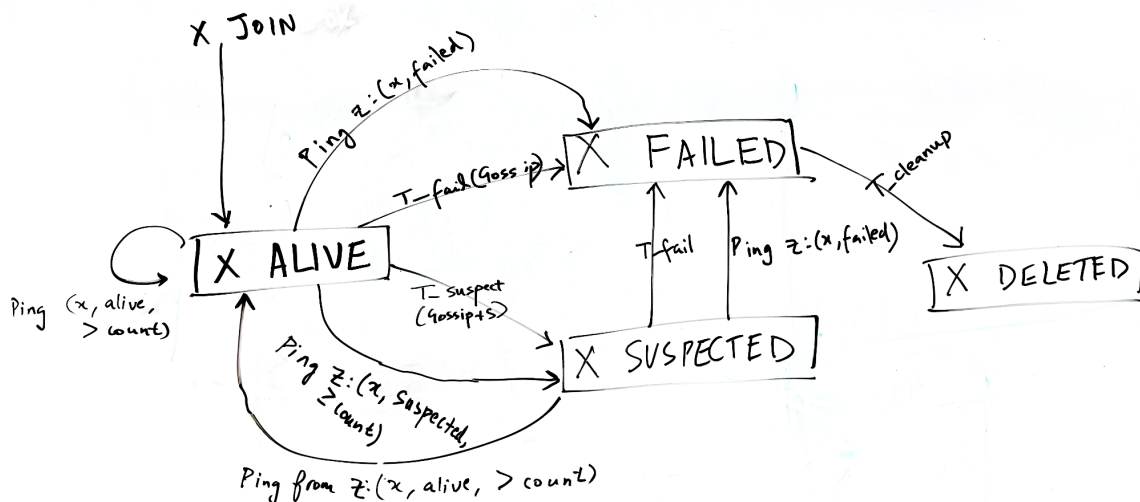 X JOIN
Ping z:(x, failed)
X FAILED
T_cleanup
T_fail(Gossip)
X ALIVE
T_fail
Ping z:(x, failed)
X DELETED
Ping (x, alive,
> count)
T_suspect
(Gossip+S)
X SUSPECTED
Ping z:(x, suspected,
≥ count)
Ping from z:(x, alive, > count)